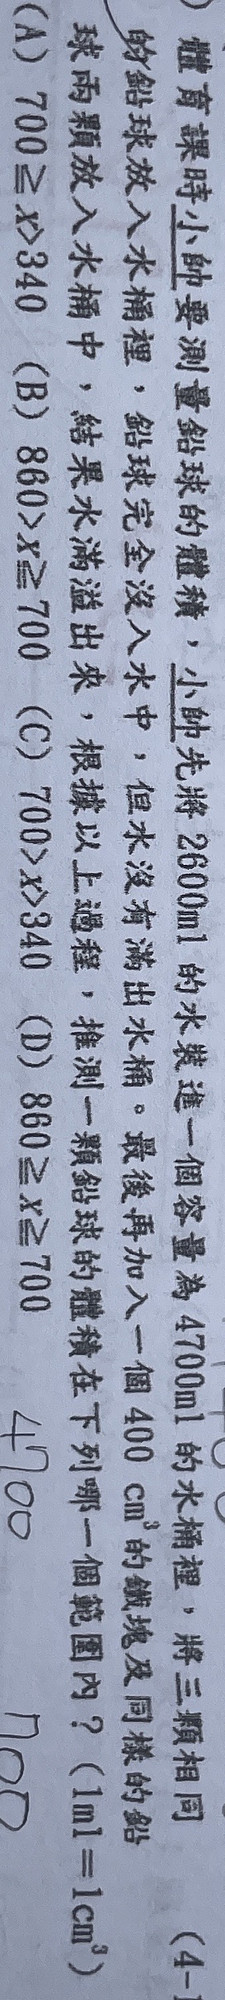 體育課時小帥要測量鉛球的體積，小帥先將 2600ml 的水裝進一個容量為 4700ml 的水桶裡，將三顆相同
的鉛球放入水桶裡，鉛球完全沒入水中，但水沒有滿出水桶。最後再加入一個 400 cm³ 的鐵塊及同樣的鉛
球兩顆放入水桶中，結果水滿溢出來，根據以上過程，推測一顆鉛球的體積在下列哪一個範圍內？（1ml＝1cm³）
(A) 700≧x>340 (B) 860>x≧700 (C) 700>x>340 (D) 860≧x≧700
(4-1
4700
700